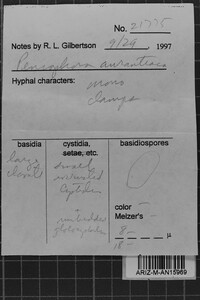 No. 21775
Notes by R. L. Gilbertson 9/29, 1997
Peniophora aurantiaca
Hyphal characters: mono
clamps
basidia cystidia, setae, etc. basidiospores
large
clavate
small
encrusted
cystidia
imbedded
gloeocystidia
color —
Melzer's —
8 –
18 –
μ
ARIZ-M-AN15969